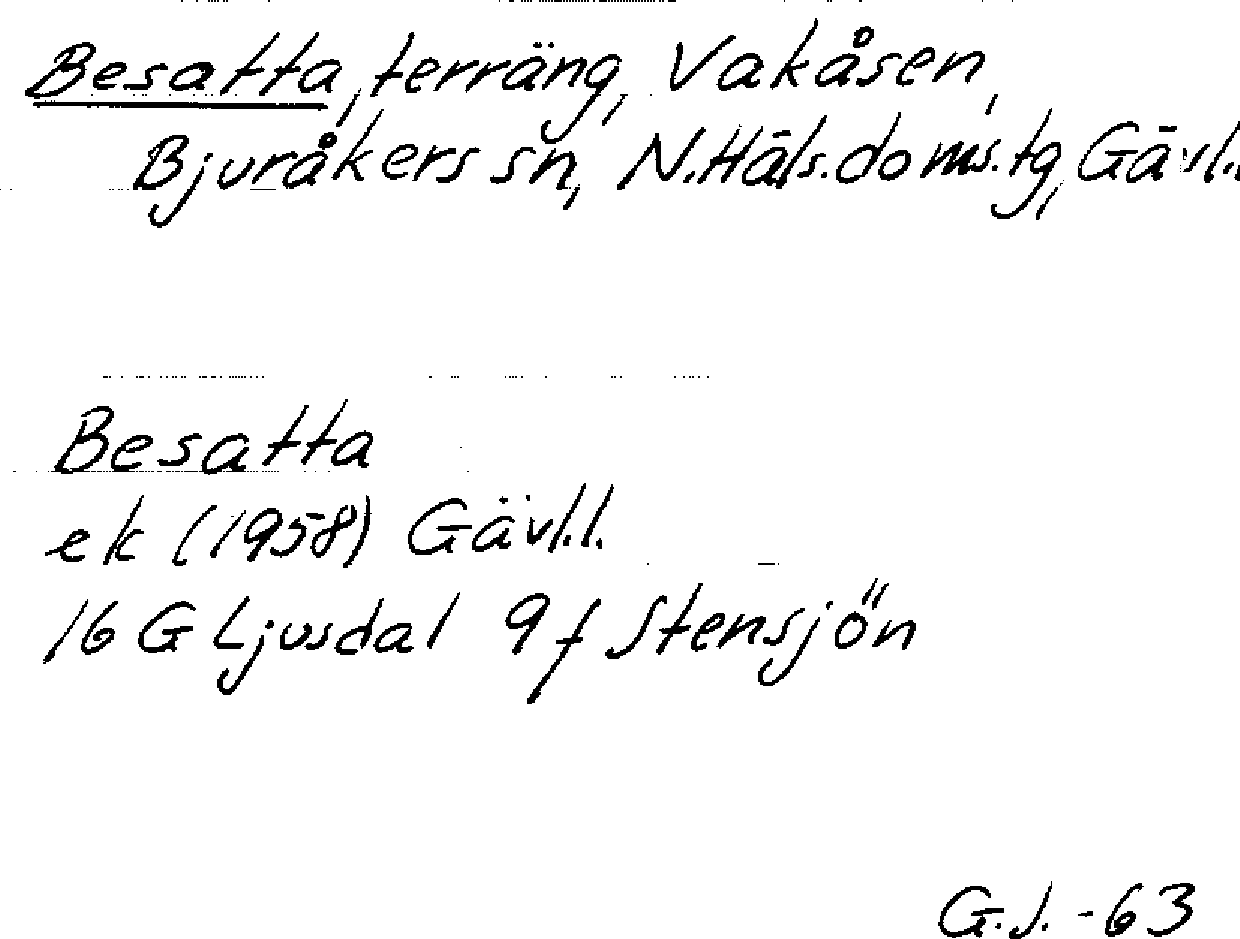 Besatta, terräng, Vakåsen,
Bjuråkers sn, N.Häls.doms.tg, Gävl.
Besatta
ek (1958) Gävl.l.
16 G Ljusdal 9f Stensjön
G.J. -63